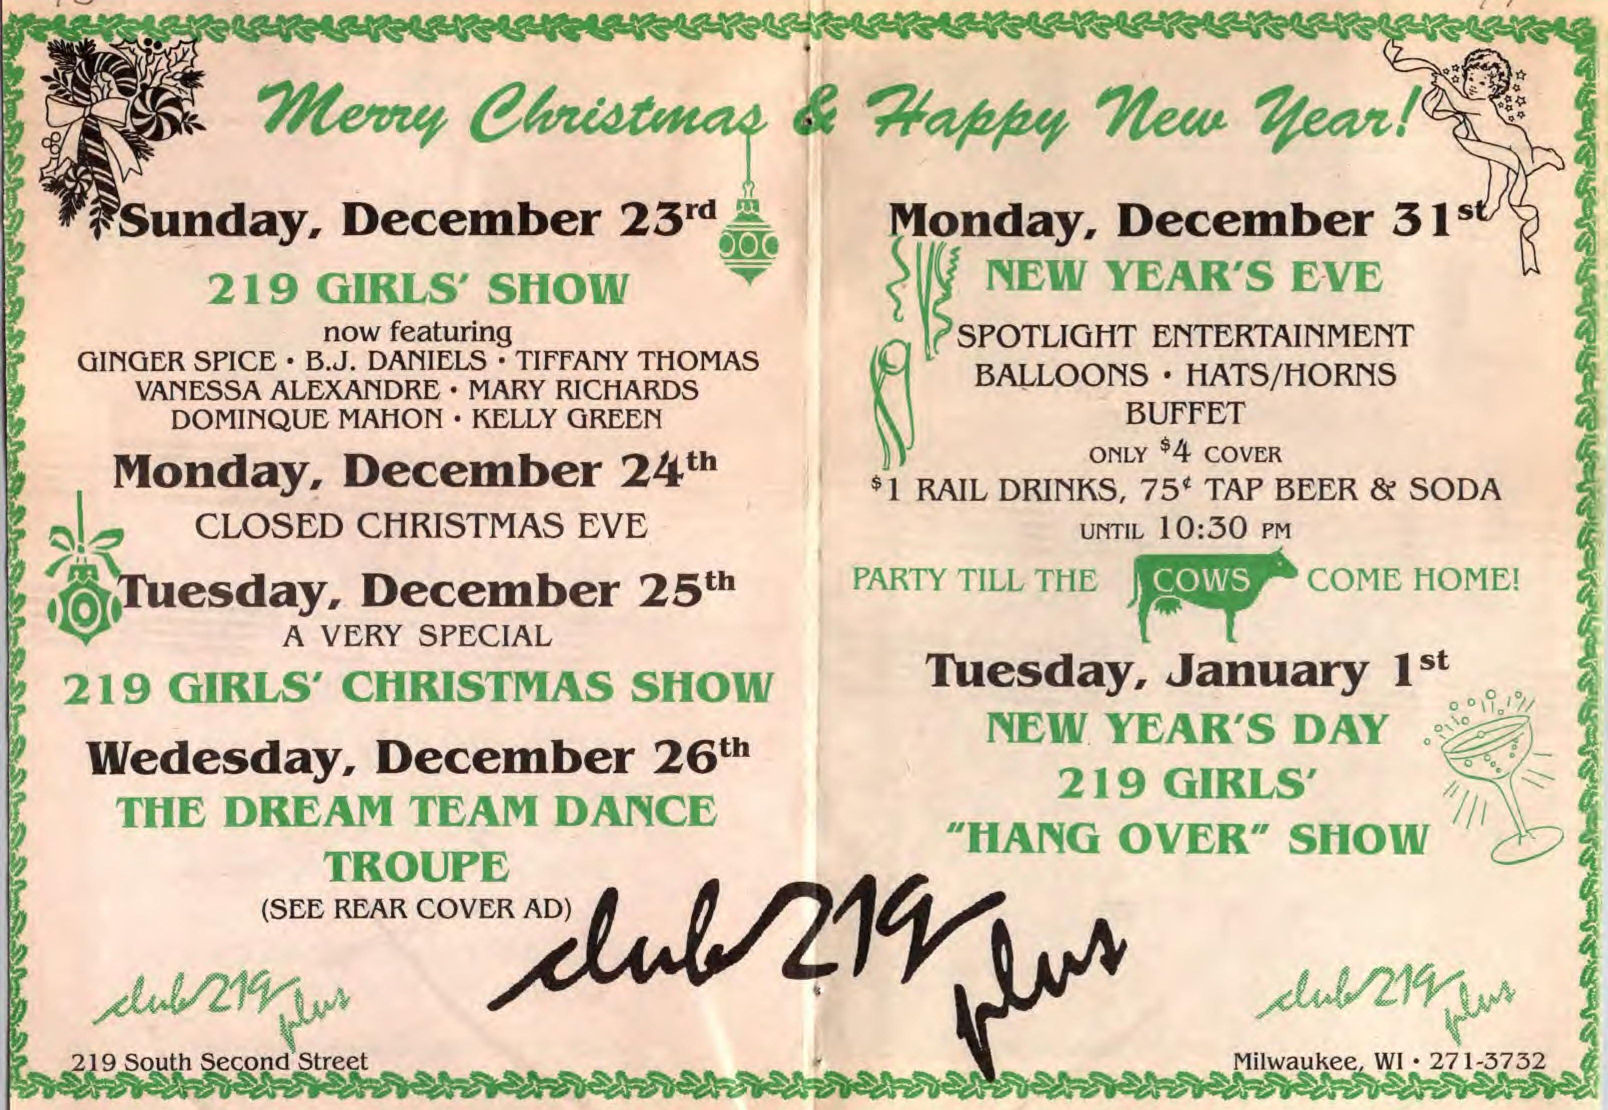 Merry Christmas & Happy New Year!
Sunday, December 23rd
219 GIRLS' SHOW
now featuring
GINGER SPICE • B.J. DANIELS • TIFFANY THOMAS
VANESSA ALEXANDRE • MARY RICHARDS
DOMINQUE MAHON • KELLY GREEN
Monday, December 24th
CLOSED CHRISTMAS EVE
Tuesday, December 25th
A VERY SPECIAL
219 GIRLS' CHRISTMAS SHOW
Wedesday, December 26th
THE DREAM TEAM DANCE
TROUPE
(SEE REAR COVER AD)
Monday, December 31st
NEW YEAR'S EVE
SPOTLIGHT ENTERTAINMENT
BALLOONS • HATS/HORNS
BUFFET
ONLY $4 COVER
$1 RAIL DRINKS, 75¢ TAP BEER & SODA
UNTIL 10:30 PM
PARTY TILL THE COWS COME HOME!
Tuesday, January 1st
NEW YEAR'S DAY
219 GIRLS'
"HANG OVER" SHOW
club 219 plus
club 219 plus
219 South Second Street
club 219 plus
Milwaukee, WI • 271-3732